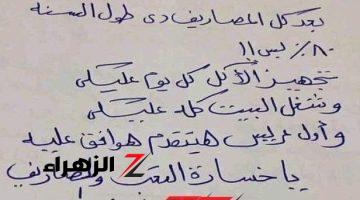 بعد كل المصاريف دى طول السنه
٨٠٪ بس !!
تجهيز الأكل كل يوم عليكى
وشغل البيت كله عليكى
و أول عريس هيتقدم هوافق عليه
يا خسارة التعب والمصاريف
الزهراء